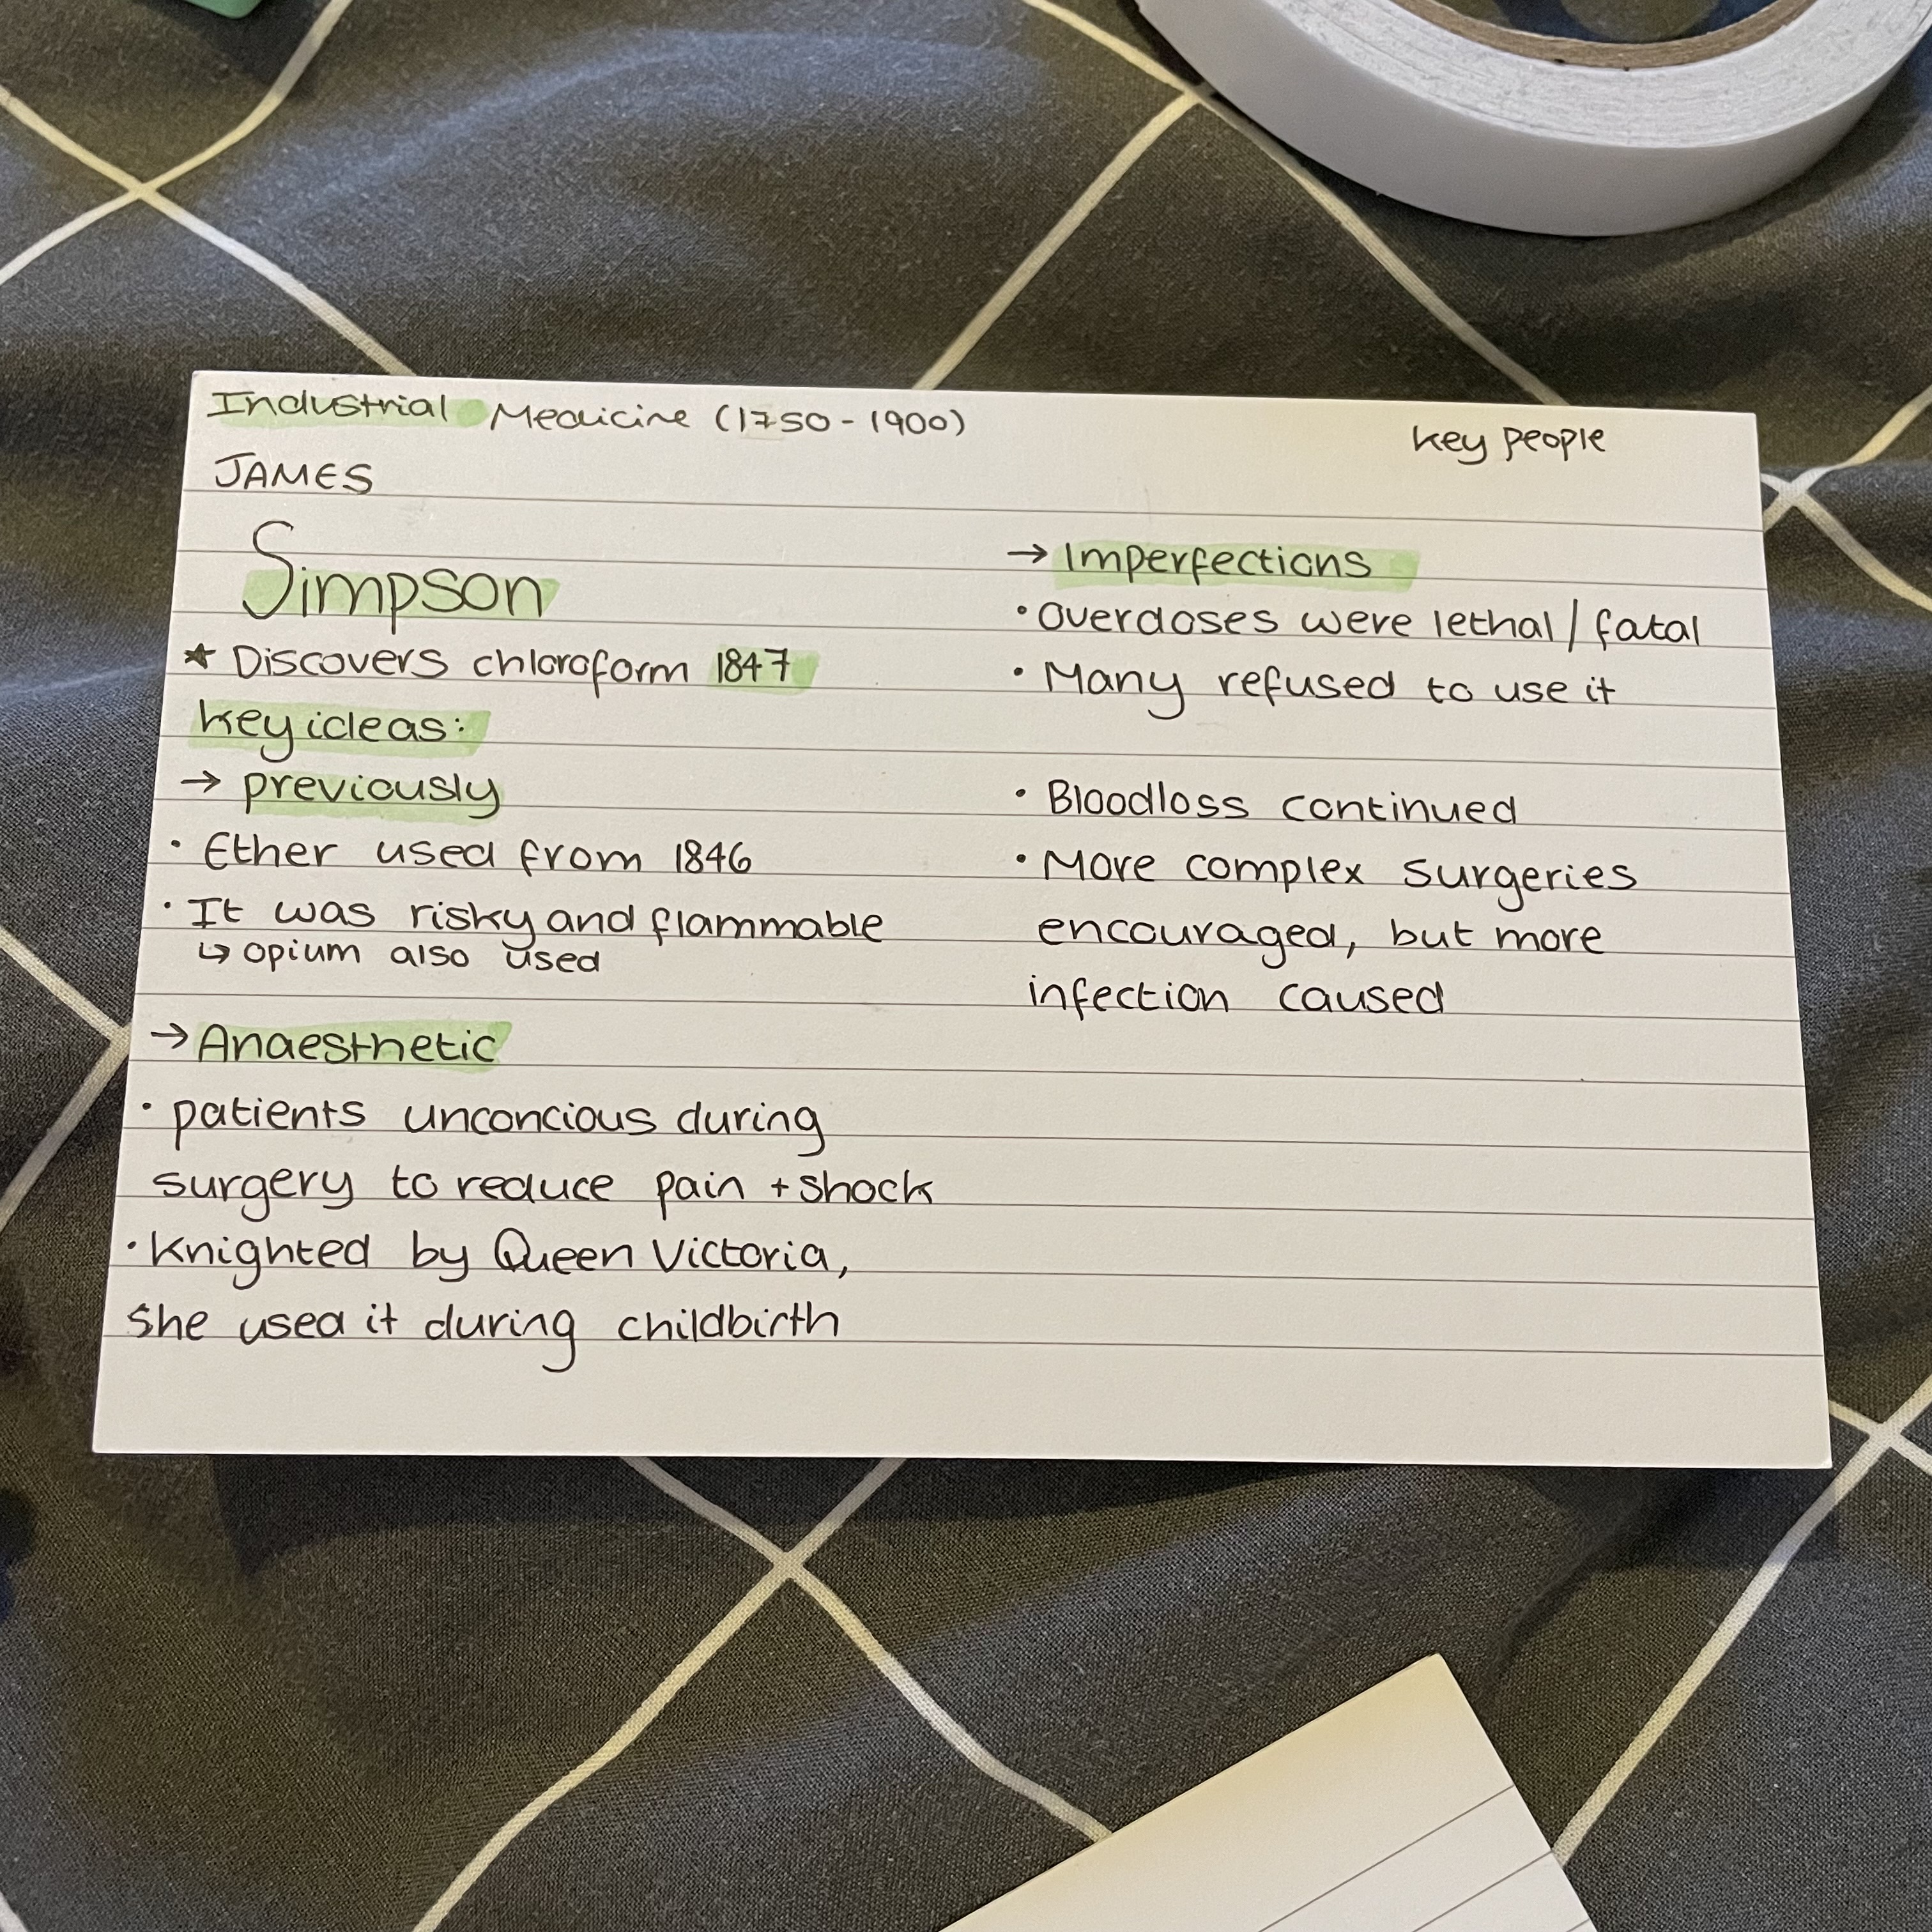 Industrial Medicine (1750 - 1900)
key people
JAMES
Simpson
★ Discovers chloroform 1847
key ideas:
→ previously
• Ether used from 1846
• It was risky and flammable
↳ opium also used
→ Anaesthetic
• patients unconcious during
surgery to reduce pain + shock
• Knighted by Queen Victoria,
she used it during childbirth
→ Imperfections
• overdoses were lethal / fatal
• Many refused to use it
• Bloodloss continued
• More complex surgeries
encouraged, but more
infection caused